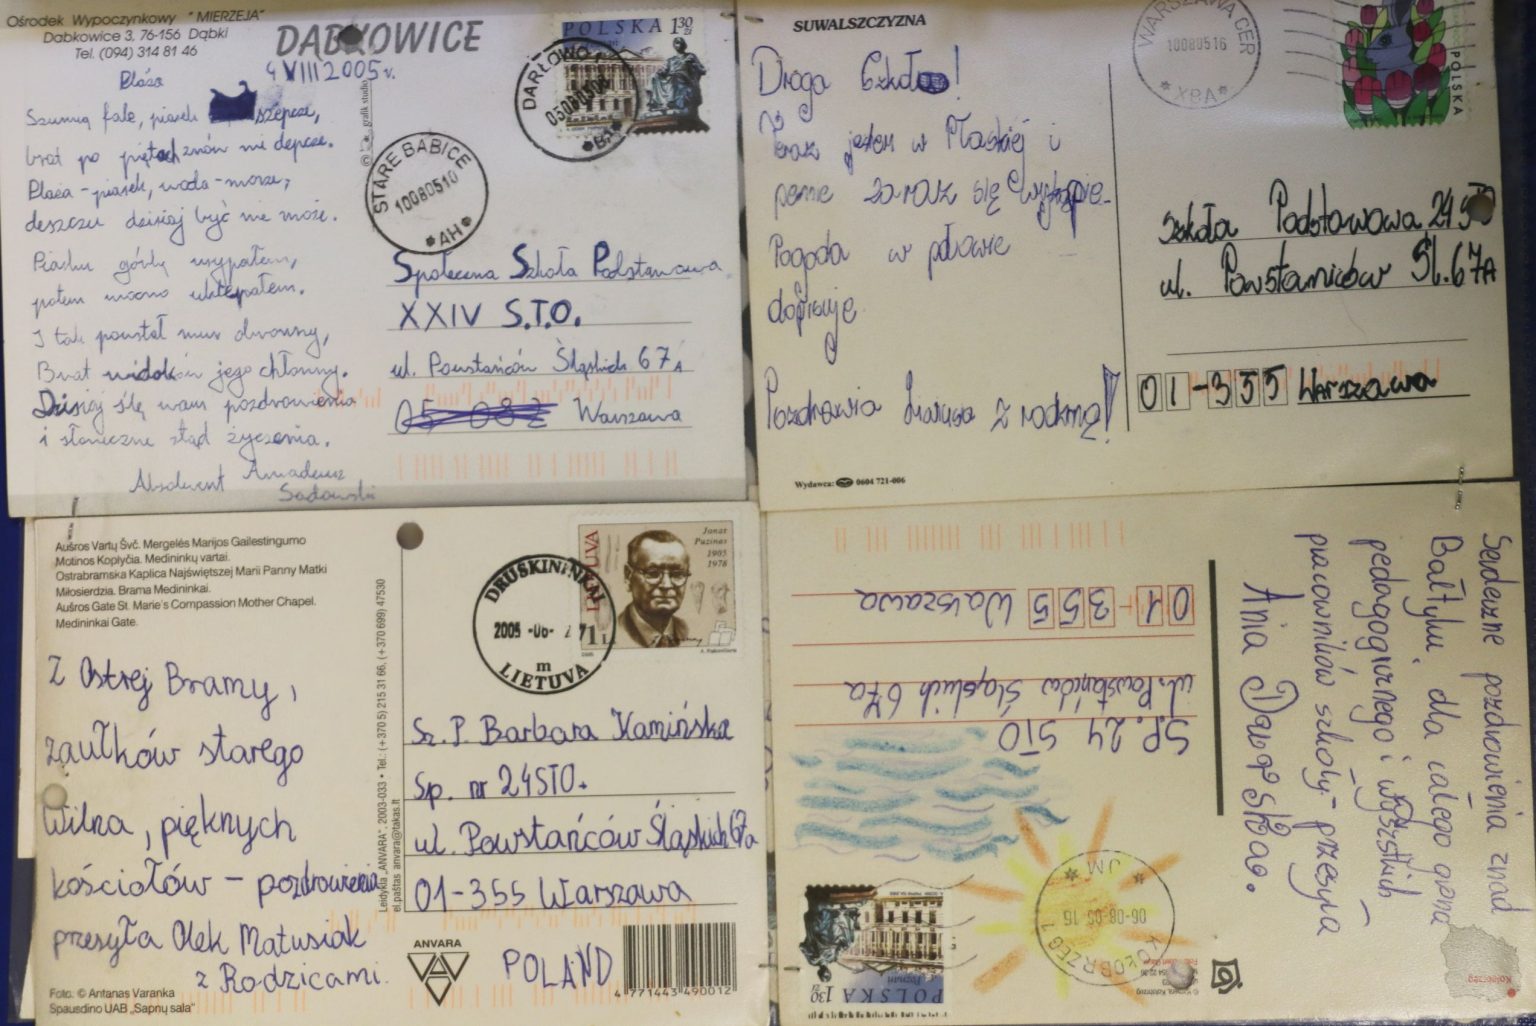 Ośrodek Wypoczynkowy "MIERZEJA"
Dąbkowice 3, 76-156 Dąbki
Tel. (094) 314 81 46
DĄBKOWICE
4 VIII 2005 r.
Plaża
Szumią fale, piasek szepcze,
brat po piętach znów nie depcze.
Plaża - piasek, woda - morze,
deszczu dzisiaj być nie może.
Piasku górkę usypałem,
potem mocno uklepałem.
I tak powstał mur obronny,
Brat widoków jego chłonny.
Dzisiaj ślę wam pozdrowienia
i słoneczne stąd życzenia.
Absolwent Amadeusz
Sadowski
© grafik studio
POLSKA 1,30 zł
DARŁOWO 1
STARE BABICE
10080510
*AH*
Społeczna Szkoła Podstawowa
XXIV S.T.O.
ul. Powstańców Śląskich 67A
05-082 Warszawa
SUWALSZCZYZNA
Droga Szkoło!
Teraz jestem w Płaskiej i
pewnie zaraz się wykąpię.
Pogoda w połowie
dopisuje.
Pozdrowia z rodziną!
Wydawca: 0604 721-006
WARSZAWA CER
10080516
*XBA*
POLSKA
Szkoła Podstawowa 24 STO
ul. Powstańców Śl. 67A
01-355 Warszawa
Aušros Vartų Švč. Mergelės Marijos Gailestingumo
Motinos Koplyčia. Medininkų vartai.
Ostrabramska Kaplica Najświętszej Marii Panny Matki
Miłosierdzia. Brama Medininkai.
Aušros Gate St. Marie's Compassion Mother Chapel.
Medininkai Gate.
Z Ostrej Bramy,
zaułków starego
Wilna, pięknych
kościołów - pozdrowienia
przesyła Olek Matusiak
z Rodzicami.
Foto. © Antanas Varanka
Spausdino UAB „Sapnų sala"
Leidykla „ANVARA", 2003-033 • Tel.: (+370 5) 215 31 66, (+370 699) 47530
el.paštas anvara@takas.lt
DRUSKININKAI
2005 -06-
m
LIETUVA
LIETUVA
Jonas
Puzinas
1905
1978
Sz. P. Barbara Kamińska
Sp. nr 24STO.
ul. Powstańców Śląskich 67a
01-355 Warszawa
ANVARA
POLAND
4 771443 490012
Serdeczne pozdrowienia znad
Bałtyku dla całego grona
pedagogicznego i wszystkich
pracowników szkoły - przesyła
SP. 24 STO
ul. Powstańców Śląskich 67a
01-355 Warszawa
KOŁOBRZEG 1
06-08-05 15
* JM *
POLSKA 1,30 zł
Poznań
Kołobrzeg